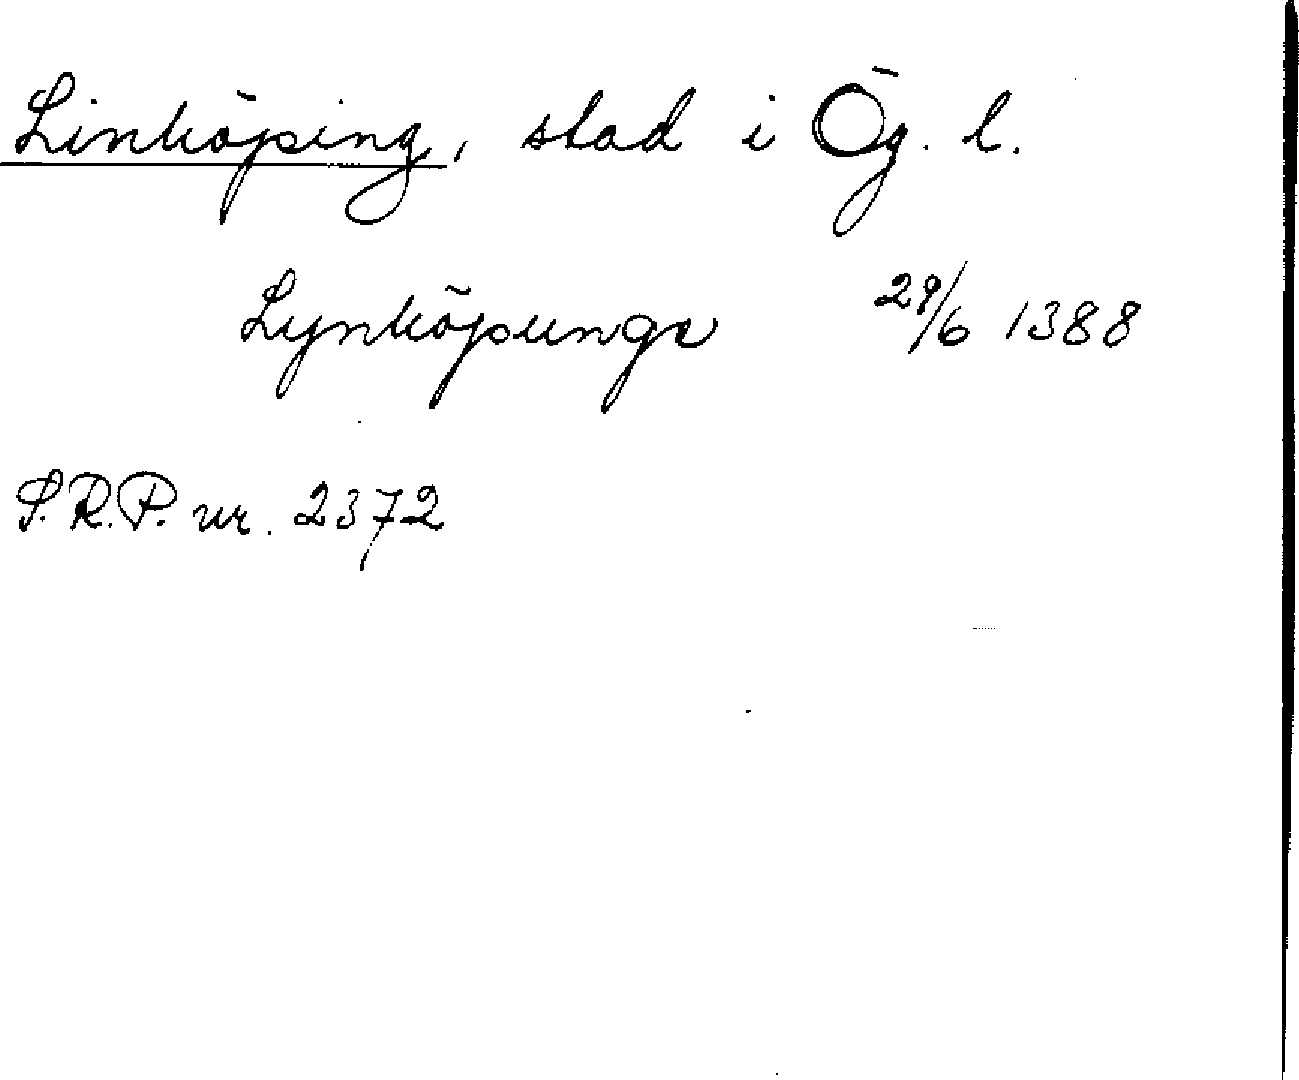 Linköping, stad i Ög. l.
Lynköpungs 29/6 1388
S.R.P. nr. 2372